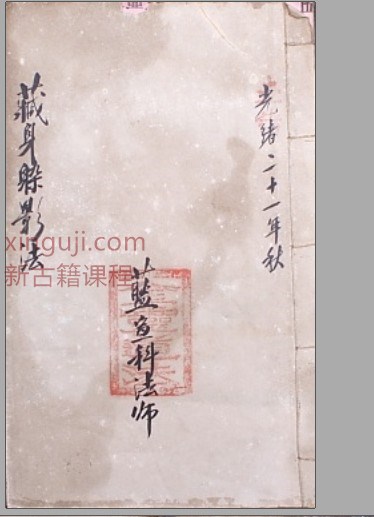 光緒二十一年秋
藏身躲影法
藍魚科法師
xinguji.com
新古籍课程